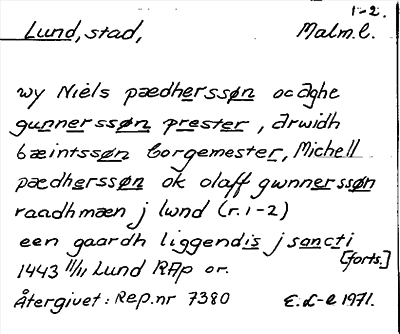 1-2.
Lund, stad, Malm.l.
wy Niels pædherssøn oc åghe
gunnerssøn prester, arwidh
bæintssøn borgemester, Michell
pædherssøn ok olaff gwnnerssøn
raadhmæn j lund (r.1-2)
een gaardh liggendis j sancti
[forts.]
1443 11/11 Lund RAp or.
Återgivet: Rep.nr 7380 E.L-e 1971.